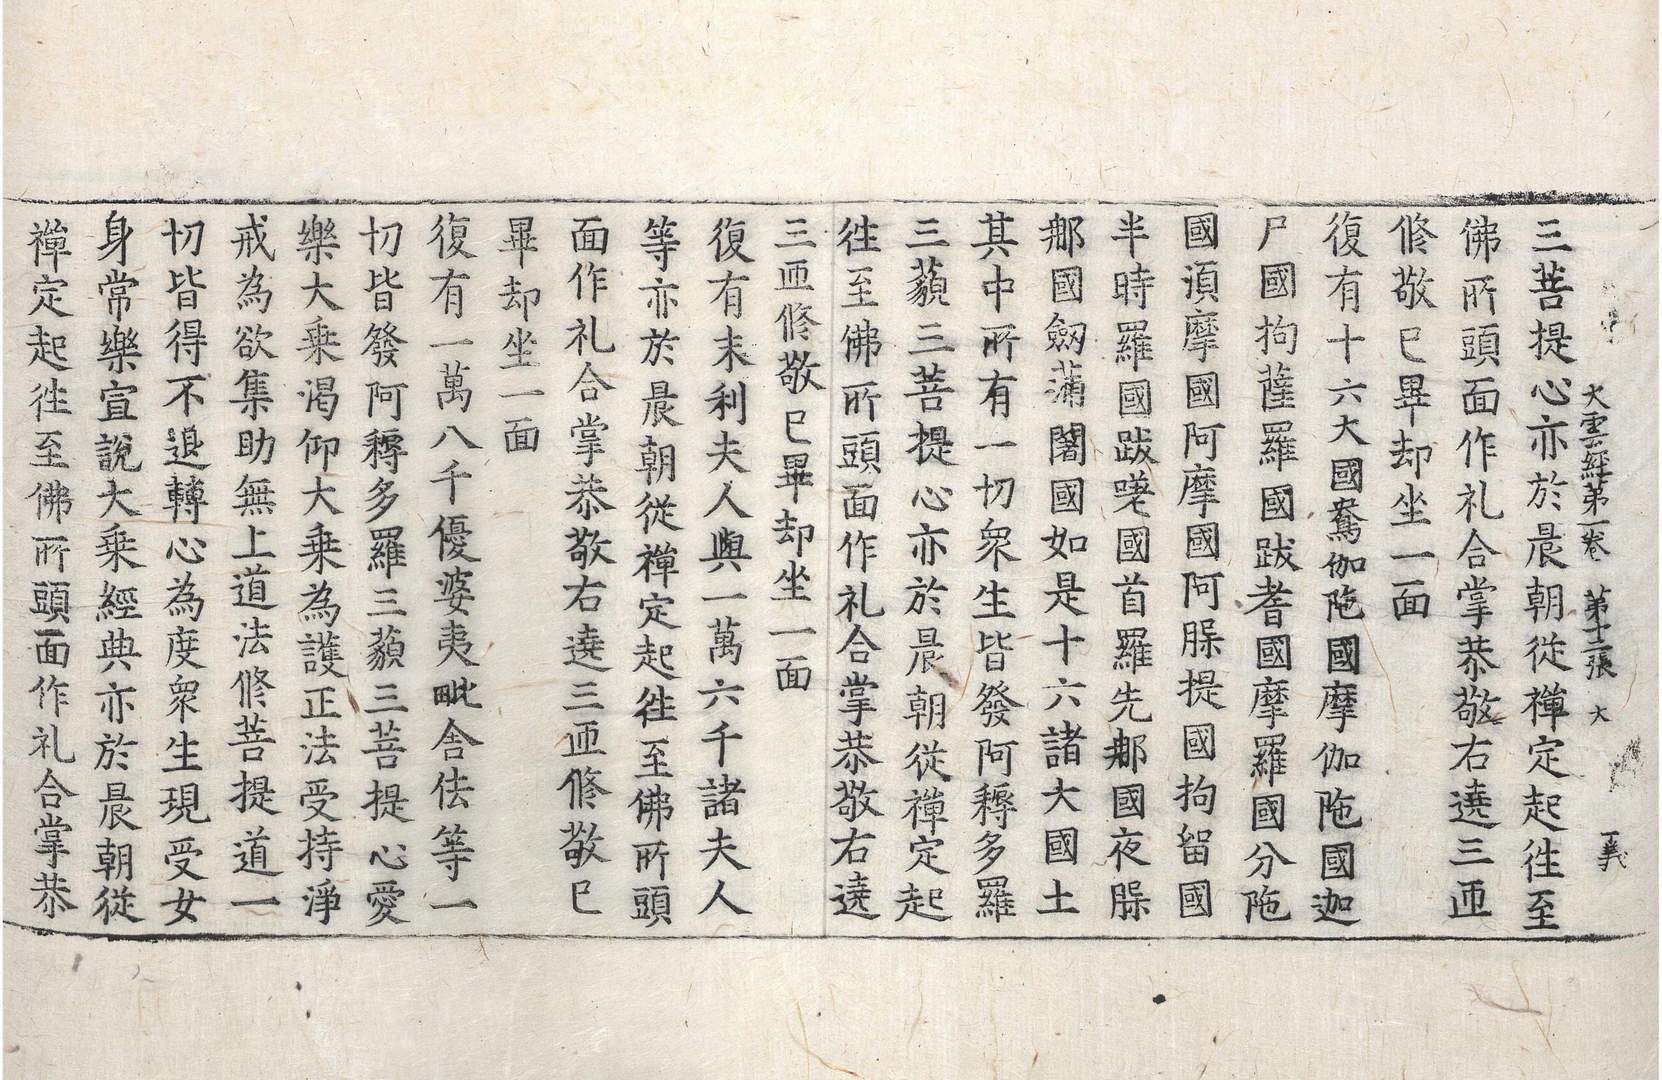 大雲經第一卷 第十二張 大 義
三菩提心亦於晨朝從禪定起徃至
佛所頭面作礼合掌恭敬右遶三匝
修敬已畢却坐一面
復有十六大國鴦伽陁國摩伽陁國迦
尸國拘薩羅國跋耆國摩羅國分陁
國湏摩國阿摩國阿䐗提國拘留國
半時羅國跋蹉國首羅先䣕國夜䐗
䣕國劒蒲闍國如是十六諸大國土
其中所有一切衆生皆發阿耨多羅
三藐三菩提心亦於晨朝從禪定起
徃至佛所頭面作礼合掌恭敬右遶
三匝修敬已畢却坐一面
復有末利夫人與一萬六千諸夫人
等亦於晨朝從禪定起徃至佛所頭
面作礼合掌恭敬右遶三匝修敬已
畢却坐一面
復有一萬八千優婆夷毗舍佉等一
切皆發阿耨多羅三藐三菩提心愛
樂大乗渴仰大乗為護正法受持淨
戒為欲集助無上道法修菩提道一
切皆得不退轉心為度衆生現受女
身常樂宣說大乗經典亦於晨朝從
禪定起徃至佛所頭面作礼合掌恭